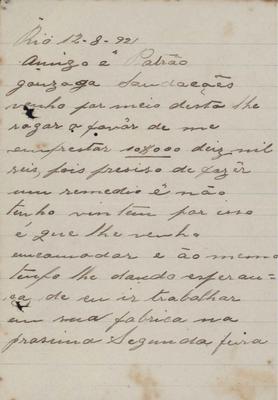 Rio 12-8-921
Amigo é Patrão
gonzaga Saudações
venho por meio desta lhe
rogar o favôr de me
emprestar 10$000 deiz mil
reis, pois preciso de fazêr
um remedio é não
tenho vintem por isso
é que lhe venho
encomodar e ão mesmo
tenpo lhe dando esperan-
ça, de eu ir trabalhar
em sua fabrica na
prosima Segunda feira